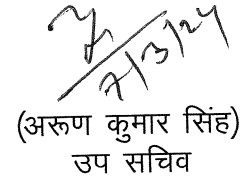 7/3/24
(अरूण कुमार सिंह)
उप सचिव